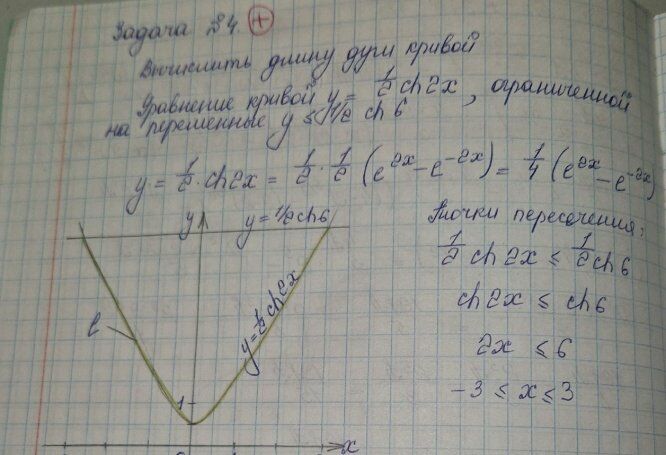 Задача 24. +
Вычислить длину дуги кривой
Уравнение кривой y = 1/2 ch2x, ограниченной
на переменные y ≤ 1/2 ch 6
y = 1/2 · ch2x = 1/2 · 1/2 (e^2x − e^−2x) = 1/4 (e^2x − e^−2x)
y
y = 1/2 ch6
y = 1/2 ch2x
l
1
x
Точки пересечения:
1/2 ch2x ≤ 1/2 ch6
ch2x ≤ ch6
2x ≤ 6
−3 ≤ x ≤ 3